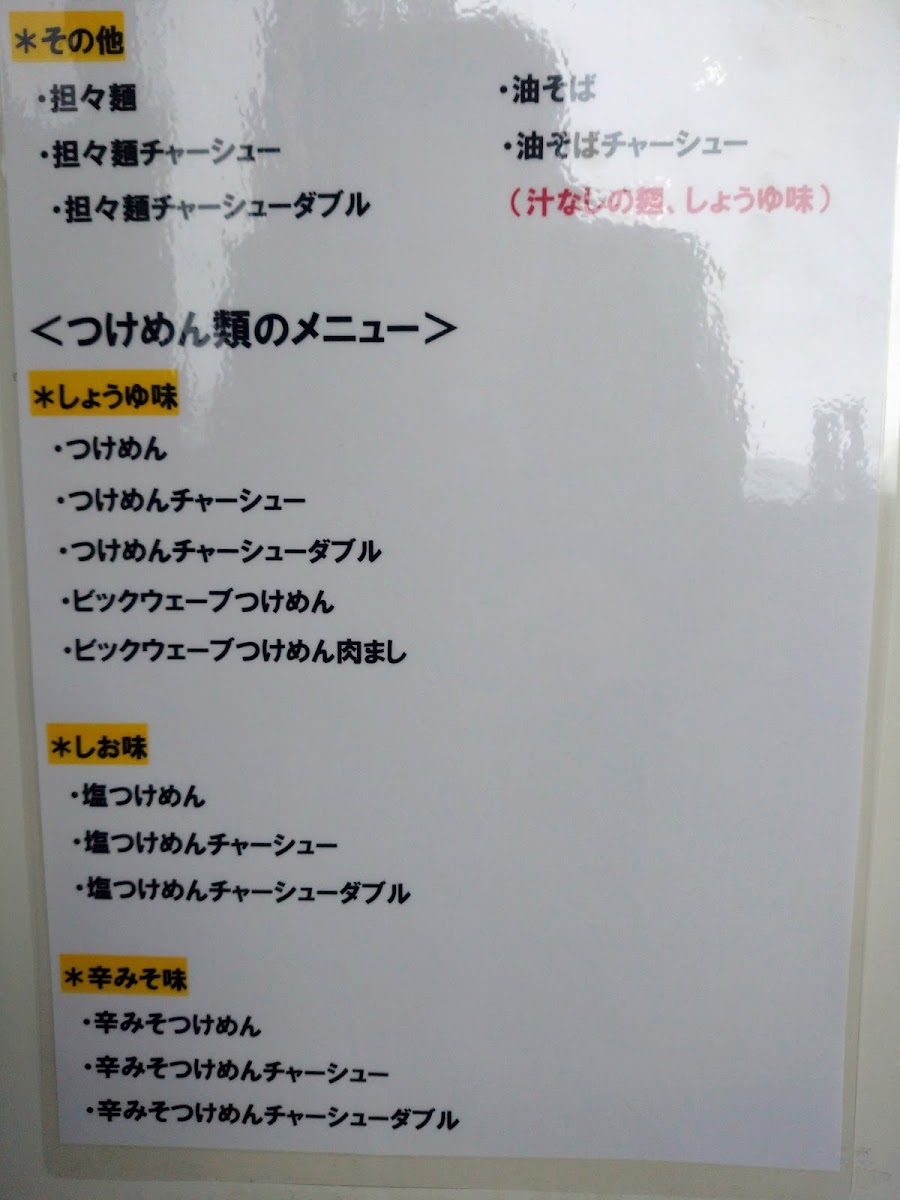 ＊その他
・担々麺
・担々麺チャーシュー
・担々麺チャーシューダブル
・油そば
・油そばチャーシュー
（汁なしの麺、しょうゆ味）
＜つけめん類のメニュー＞
＊しょうゆ味
・つけめん
・つけめんチャーシュー
・つけめんチャーシューダブル
・ビックウェーブつけめん
・ビックウェーブつけめん肉まし
＊しお味
・塩つけめん
・塩つけめんチャーシュー
・塩つけめんチャーシューダブル
＊辛みそ味
・辛みそつけめん
・辛みそつけめんチャーシュー
・辛みそつけめんチャーシューダブル